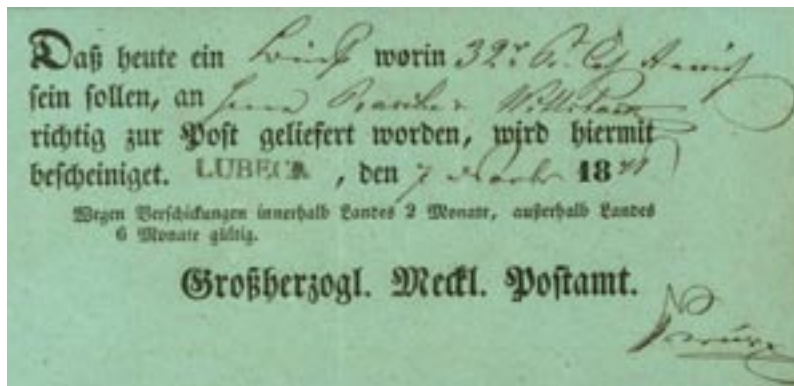 Daß heute ein Brief worin 32
sein sollen, an Herrn
richtig zur Post geliefert worden, wird hiermit
bescheiniget. LÜBECK, den 7 18
Wegen Verschickungen innerhalb Landes 2 Monate, außerhalb Landes
6 Monate gültig.
Großherzogl. Meckl. Postamt.